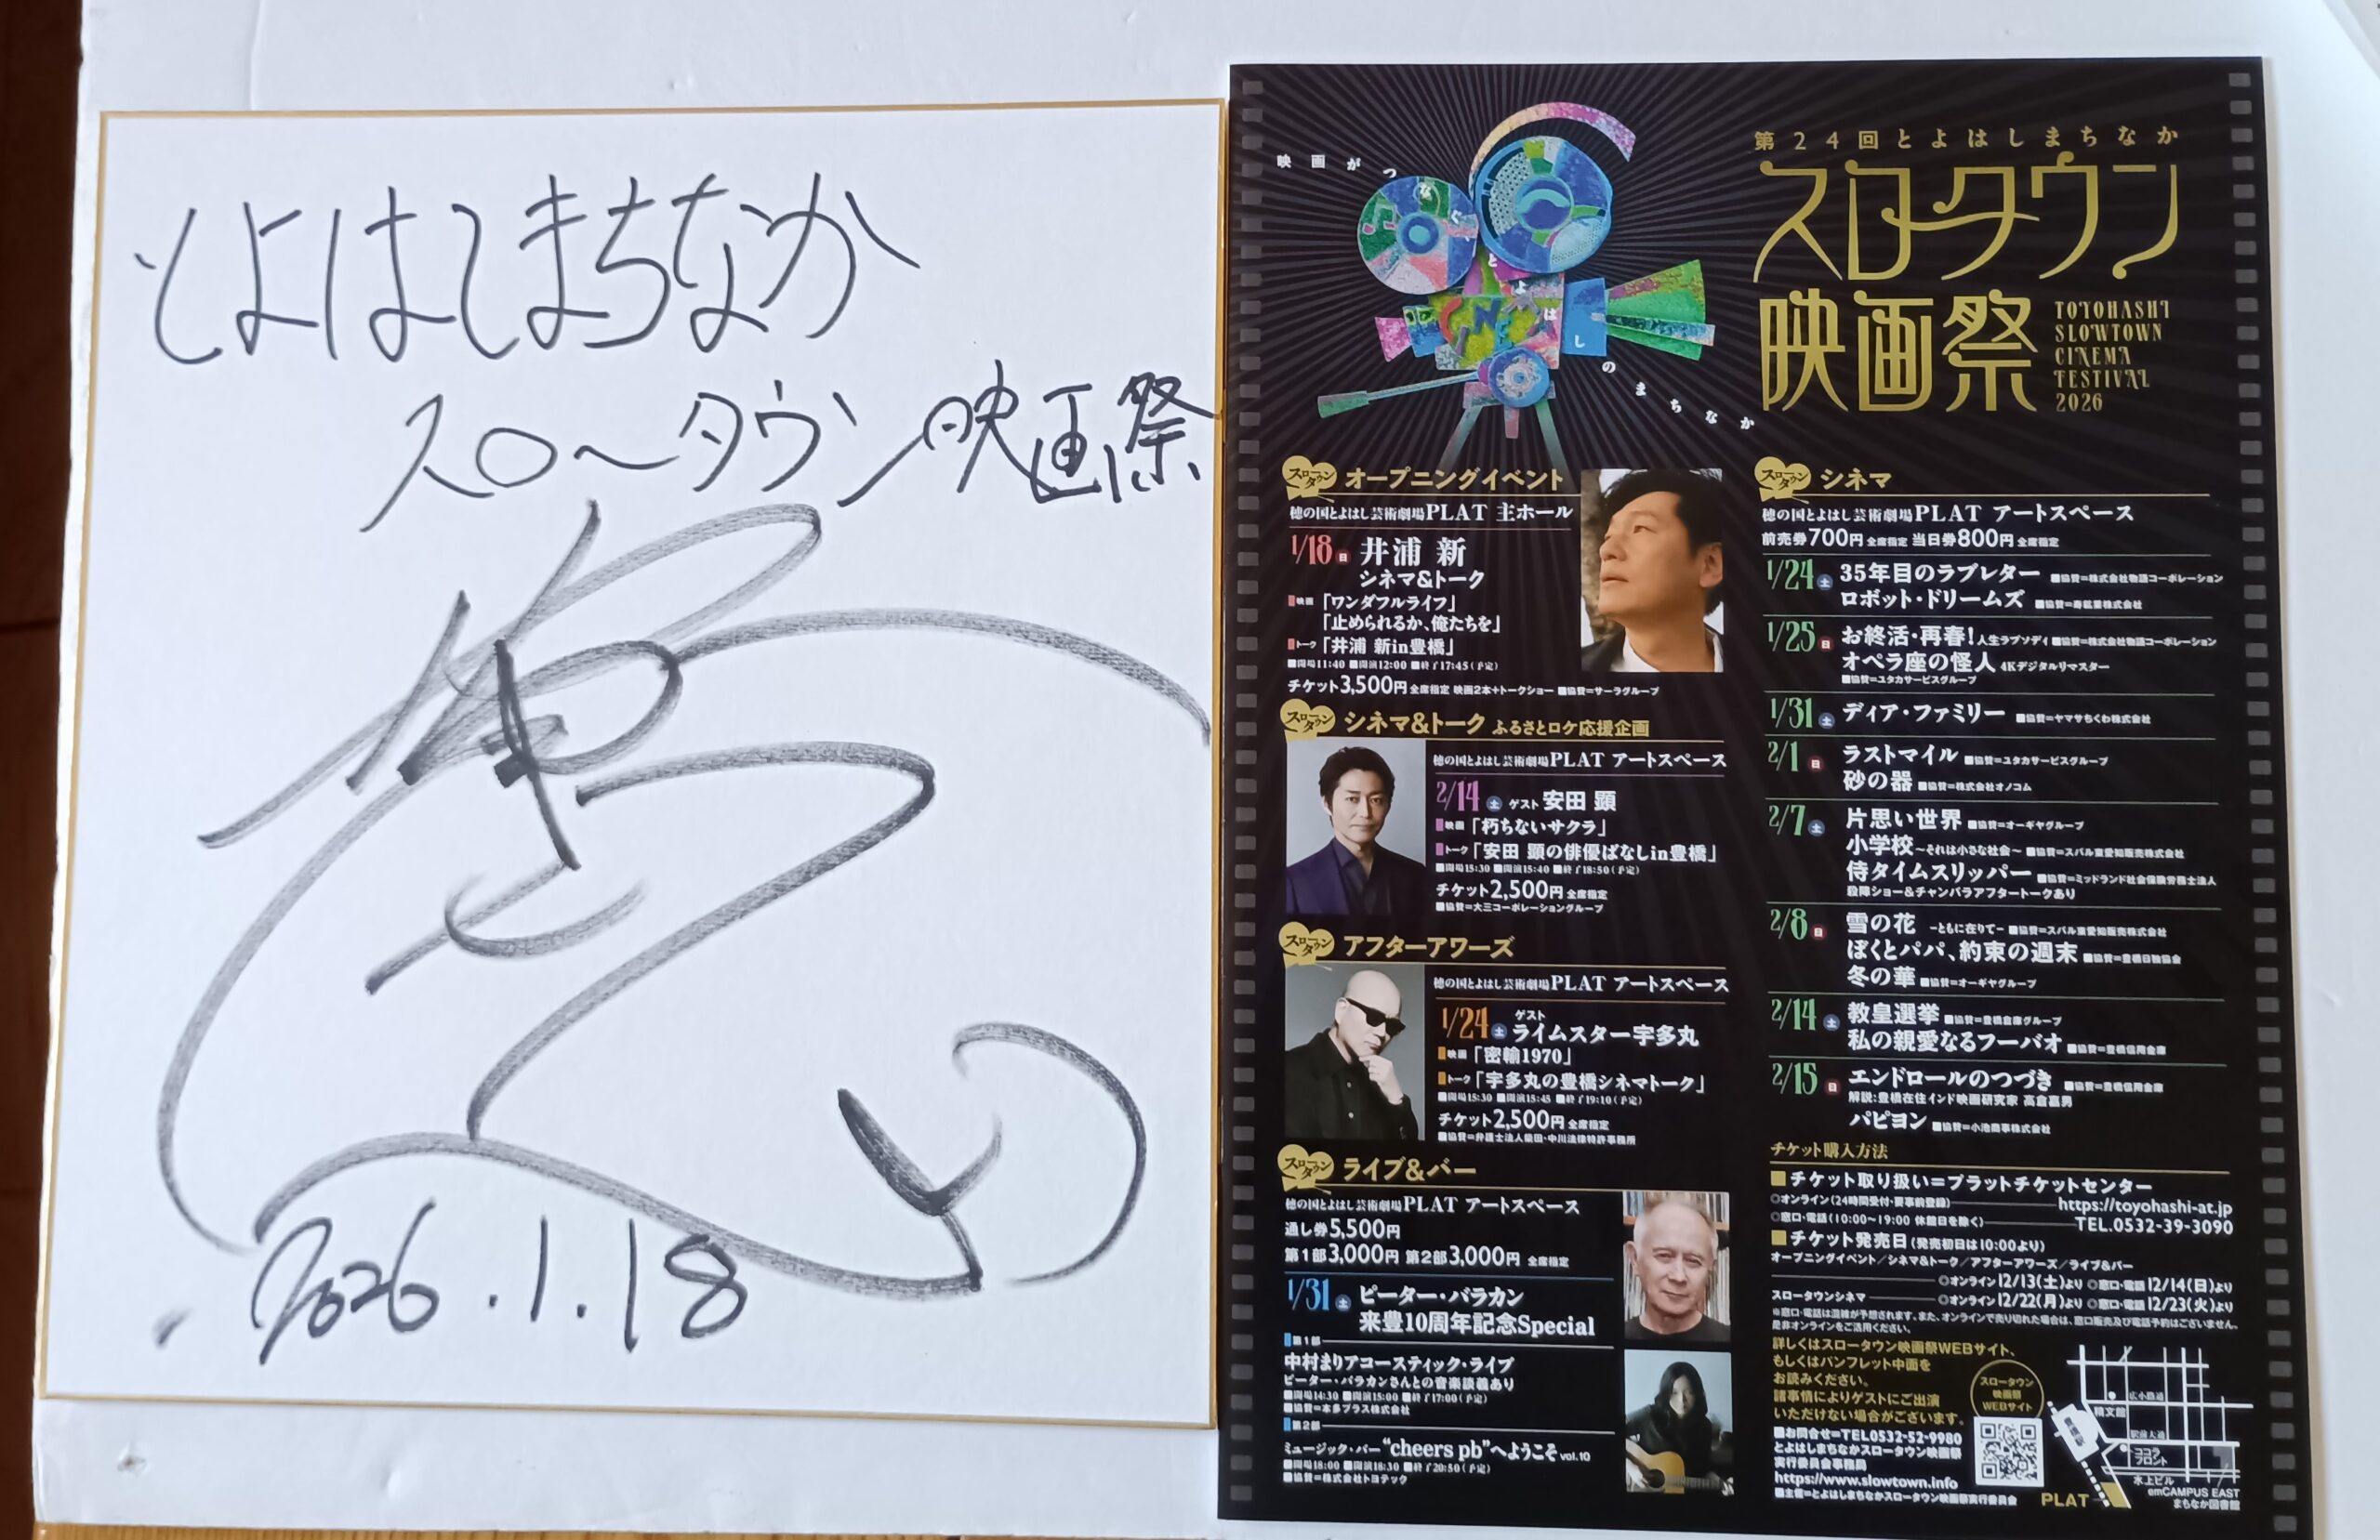 とよはしまちなか
スロータウン映画祭
2026.1.18
映画がつなぐとよはしのまちなか
第24回とよはしまちなか
スロータウン
映画祭
TOYOHASHI
SLOWTOWN
CINEMA
FESTIVAL
2026
スロータウン オープニングイベント
穂の国とよはし芸術劇場PLAT 主ホール
1/18 日 井浦 新
シネマ&トーク
■映画「ワンダフルライフ」
「止められるか、俺たちを」
■トーク「井浦 新in豊橋」
■開場11:40 ■開演12:00 ■終了17:45(予定)
チケット3,500円 全席指定 映画2本+トークショー ■協賛=サーラグループ
スロータウン シネマ&トーク ふるさとロケ応援企画
穂の国とよはし芸術劇場PLAT アートスペース
2/14 土 ゲスト 安田 顕
■映画「朽ちないサクラ」
■トーク「安田 顕の俳優ばなしin豊橋」
■開場15:30 ■開演15:40 ■終了18:50(予定)
チケット2,500円 全席指定
■協賛=大三コーポレーショングループ
スロータウン アフターアワーズ
穂の国とよはし芸術劇場PLAT アートスペース
1/24 土 ゲスト
ライムスター宇多丸
■映画「密輸1970」
■トーク「宇多丸の豊橋シネマトーク」
■開場15:30 ■開演15:45 ■終了19:10(予定)
チケット2,500円 全席指定
■協賛=弁護士法人柴田・中川法律特許事務所
スロータウン ライブ&バー
穂の国とよはし芸術劇場PLAT アートスペース
通し券5,500円
第1部3,000円 第2部3,000円 全席指定
1/31 土 ピーター・バラカン
来豊10周年記念Special
■第1部
中村まりアコースティック・ライブ
ピーター・バラカンさんとの音楽談義あり
■開場14:30 ■開演15:00 ■終了17:00(予定)
■協賛=本多プラス株式会社
■第2部
ミュージック・バー“cheers pb”へようこそ vol.10
■開場18:00 ■開演18:30 ■終了20:50(予定)
■協賛=株式会社トヨテック
スロータウン シネマ
穂の国とよはし芸術劇場PLAT アートスペース
前売券700円 全席指定 当日券800円 全席指定
1/24 土 35年目のラブレター ■協賛=株式会社物語コーポレーション
ロボット・ドリームズ
1/25 日 お終活・再春!人生ラプソディ ■協賛=株式会社物語コーポレーション
オペラ座の怪人 4Kデジタルリマスター
■協賛=ユタカサービスグループ
1/31 土 ディア・ファミリー ■協賛=ヤマサちくわ株式会社
2/1 日 ラストマイル ■協賛=ユタカサービスグループ
砂の器 ■協賛=株式会社オノコム
2/7 土 片思い世界 ■協賛=オーギヤグループ
小学校～それは小さな社会～ ■協賛=スバル東愛知販売株式会社
侍タイムスリッパー ■協賛=ミッドランド社会保険労務士法人
殺陣ショー&チャンバラアフタートークあり
2/8 日 雪の花 -ともに在りて- ■協賛=スバル東愛知販売株式会社
ぼくとパパ、約束の週末 ■協賛=豊橋日独協会
冬の華 ■協賛=オーギヤグループ
2/14 土 教皇選挙 ■協賛=豊橋倉庫グループ
私の親愛なるフーバオ ■協賛=豊橋信用金庫
2/15 日 エンドロールのつづき ■協賛=豊橋信用金庫
解説:豊橋在住インド映画研究家 高倉嘉男
パピヨン ■協賛=小池商事株式会社
チケット購入方法
■チケット取り扱い=プラットチケットセンター
◎オンライン(24時間受付・要事前登録) https://toyohashi-at.jp
◎窓口・電話(10:00〜19:00 休館日を除く) TEL.0532-39-3090
■チケット発売日(発売初日は10:00より)
オープニングイベント/シネマ&トーク/アフターアワーズ/ライブ&バー
◎オンライン12/13(土)より ◎窓口・電話12/14(日)より
スロータウンシネマ ◎オンライン12/22(月)より ◎窓口・電話12/23(火)より
※窓口・電話は混雑が予想されます。また、オンラインで売り切れた場合は、窓口販売及び電話予約はございません。
是非オンラインをご活用ください。
詳しくはスロータウン映画祭WEBサイト、
もしくはパンフレット中面を
お読みください。
諸事情によりゲストにご出演
いただけない場合がございます。
■お問合せ=TEL.0532-52-9980
とよはしまちなかスロータウン映画祭
実行委員会事務局
https://www.slowtown.info
■主催=とよはしまちなかスロータウン映画祭実行委員会
スロータウン
映画祭
WEBサイト
広小路通
精文館
駅前大通
豊橋駅
ココラ
フロント
水上ビル
emCAMPUS EAST
まちなか図書館
PLAT